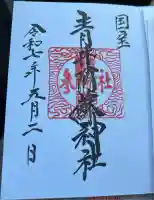 国宝
青井阿蘇神社
令和七年五月二日